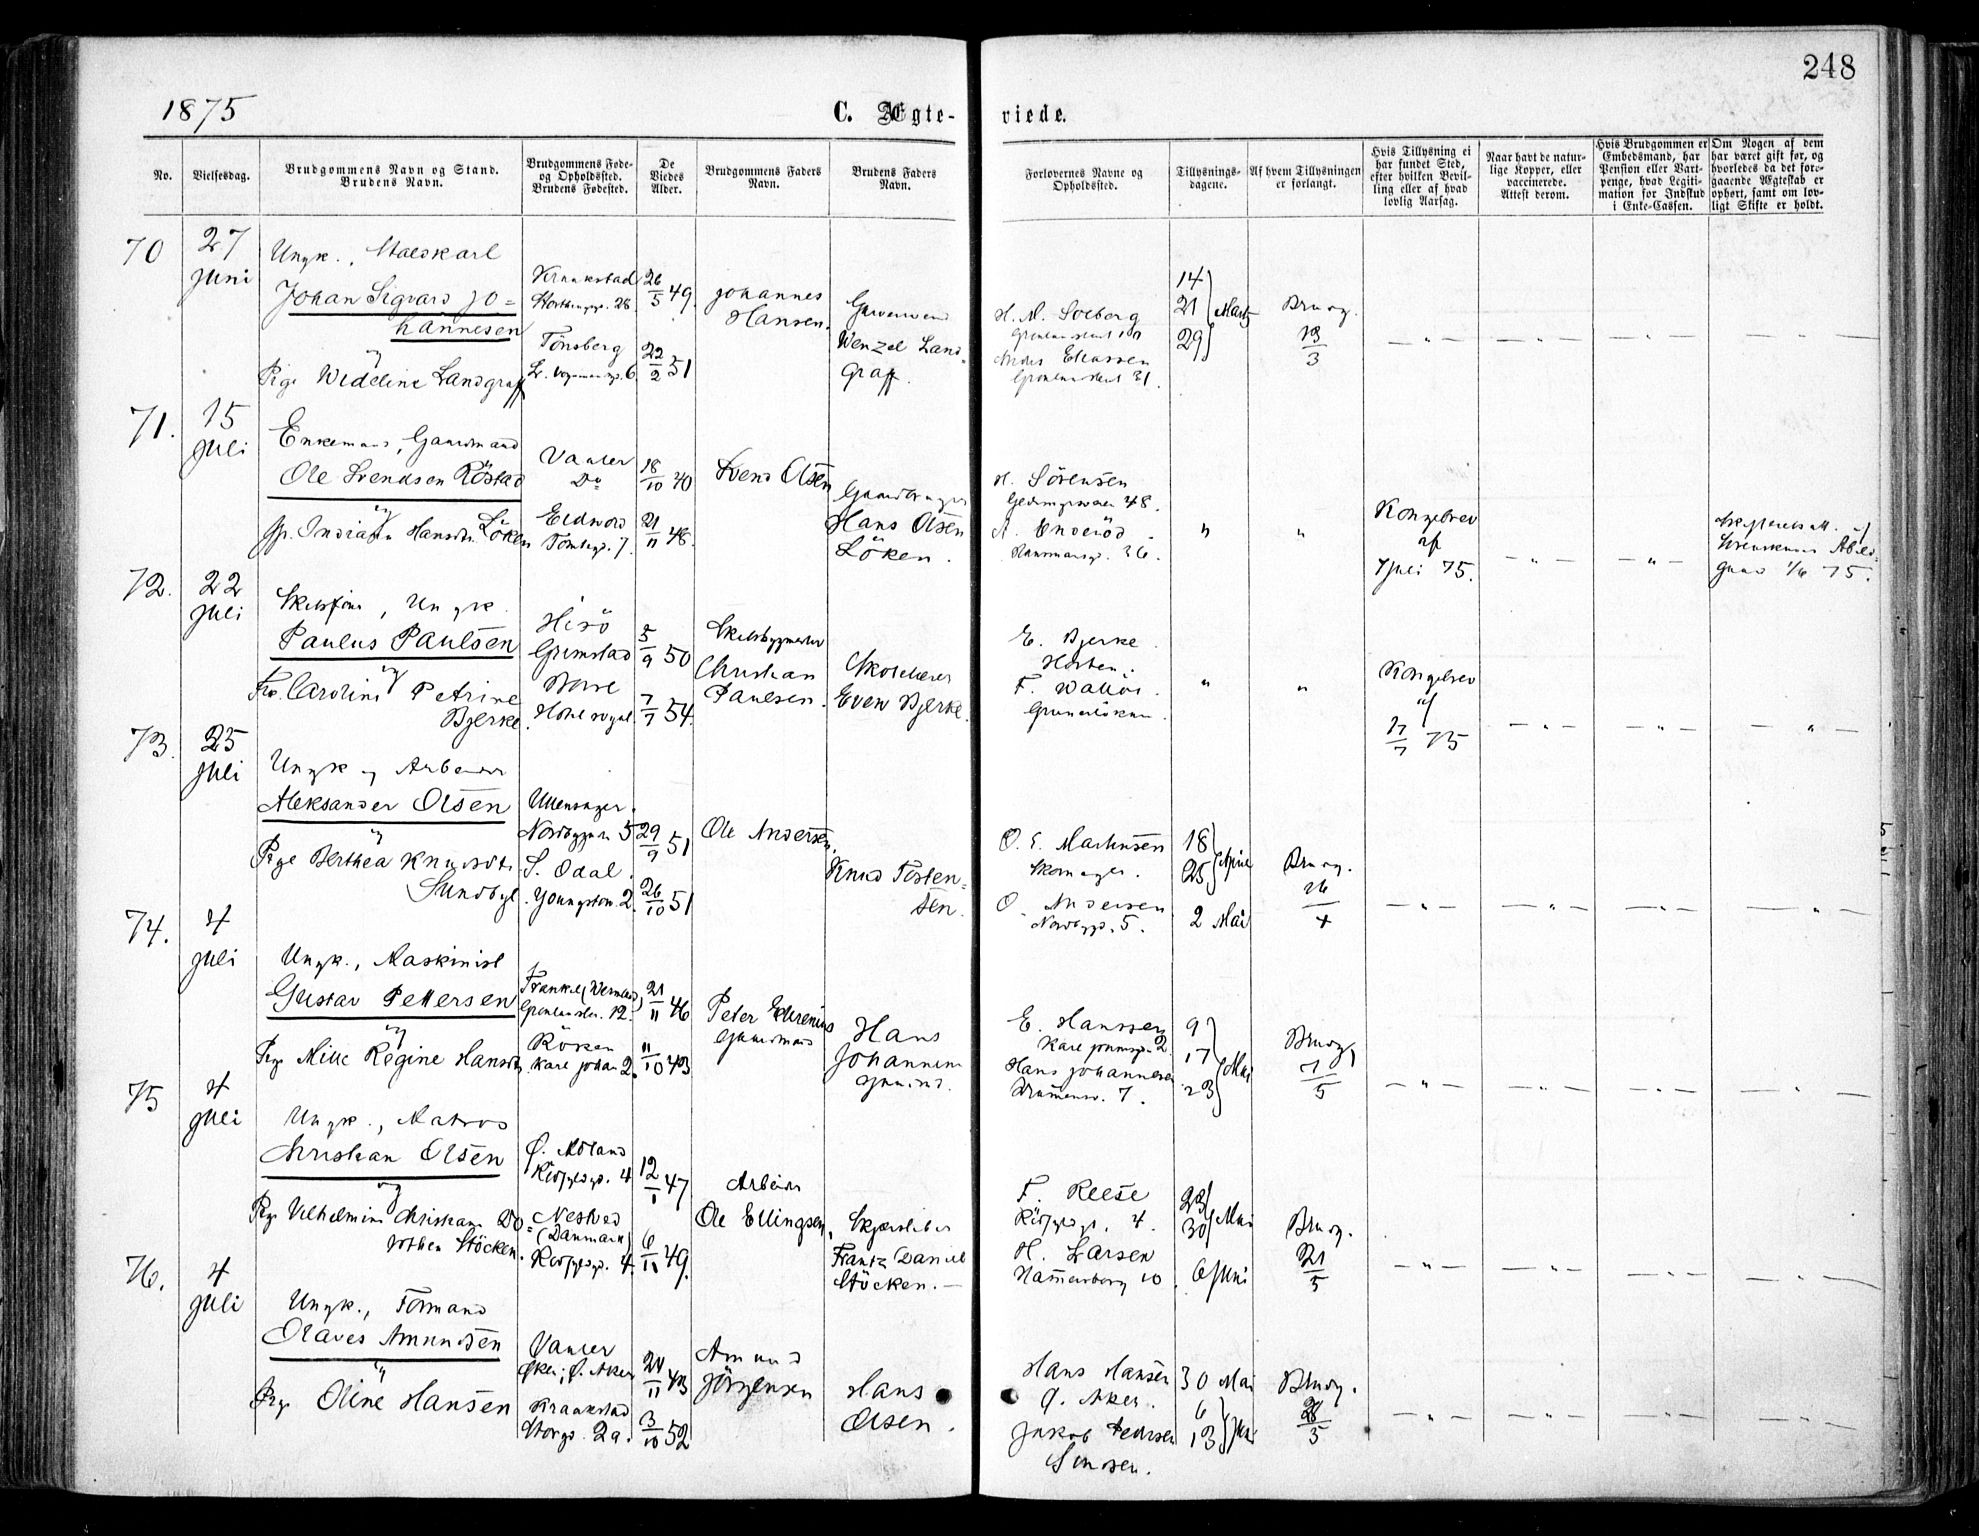 248
1875
C. Ægte-
viede.
No.
Vielsesdag.
Brudgommens Navn og Stand.
Brudens Navn.
Brudgommens Føde-
og Opholdssted.
Brudens Fødested.
De
Viedes
Alder.
Brudgommens Faders
Navn.
Brudens Faders
Navn.
Forlovernes Navne og
Opholdssted.
Tillysnings-
dagene.
Af hvem Tillysningen
er forlangt.
Hvis Tillysning ei
har fundet Sted,
efter hvilken Bevil-
ling eller af hvad
lovlig Aarsag.
Naar havt de natur-
lige Kopper, eller
vaccinerede.
Attest derom.
Hvis Brudgommen er
Embedsmand, har
Pension eller Vart-
penge, hvad Legiti-
mation for Indskud
i Enke-Cassen.
Om Nogen af dem
har været gift før, og
hvorledes da det fore-
gaaende Ægteskab er
ophørt, samt om lov-
ligt Skifte er holdt.
70
27
juni
Ungk., Staldkarl
Johan Sigvard Jo=
hannesen
og
Pige Wideline Landgraff
Kraakstad
Storthingsg. 28
Tönsberg
26/5 49.
22/2 51
Johannes
Hansen.
Wenzel Land=
graff.
H. A. Solberg
Anders Eliassen
14
21 Marts
29
Brudg.
13/3
71.
15
juli
Enkemand, Gaardmand
Ole Svendsen Röstad
og
Hansdtr. Löken
Vanler
Do
Eidsvold
Tomtegd. 7.
18/10 40
21/11 48.
Svend Olsen
Gaardbruger
Hans Olsen
Löken.
H. Sörensen
48.
36.
"
"
Kongebrev
af
7 juli 75.
1/6 75.
72.
22
juli
Ungk.
Paulus Paulsen
og
Frk. Caroline Petrine
Bjerke.
Hisö
Grimstad
Borre
Hotel royal
5/9 50
7/7 54.
Skibsbygmester
Christian
Paulsen.
Skolelærer
Even Bjerke.
E. Bjerke
Horten.
F. Walløe.
Grünerlökken.
"
"
Kongebrev
af
17/7 75
73.
25
juli
Ungk og Arbeider
Aleksander Olsen
og
Pige Berthea Knudsdtr.
Sundbye
Ullensager.
Nordbygd. 5
S. Odal.
Youngstorv. 2.
29/9 51
26/10 51
Ole Andersen.
Knud Tosten=
sen.
O. E. Martinsen
Skomager.
O. Andersen
Nordbygd. 5.
18
25 April
2 Mai
Brudg.
16/4
74.
4
juli
Ungk., Maskinist
Gustav Pettersen
og
Pige Mille Regine Hansdtr.
(Vermland)
Grønlandsl. 12.
Röken
Karl Johan 2.
21/11 46
11/10 43
Peter
Gaardmand
Hans
Johannesen
E. Hanssen
Hans Johannesen
Drammensv. 7.
9
17 Mai
23
Brudg.
7/5
75
4
juli
Ungk., Matros
Christian Olsen
og
Pige Vilhelmine Christiane Do=
rothea Stöcken.
Ø. Moland
Rödfyldgd. 4
Nestved
(Danmark)
Rödfyldgd. 4.
12/1 47
6/11 49.
Arbeider
Ole Ellingsen.
Skjærsliber
Frantz Daniel
Stöcken.
F. Reese
Rödfyldgd. 4.
H. Larsen
Hammersborg 10.
23
30 Mai
6 Juni
Brudg.
21/5
76.
4
juli
Ungk., Formand
Olaves Amundsen
og
Pige Oline Hansen
Vanler
Ø. Aker
Kraakstad
Storgd. 2a.
24/11 43
3/10 52
Amund
Jörgensen
Hans
Olsen.
Hans Hansen
Ø. Aker.
Jakob Pedersen
30 Mai
6
13 Juni
Brudg.
28/5